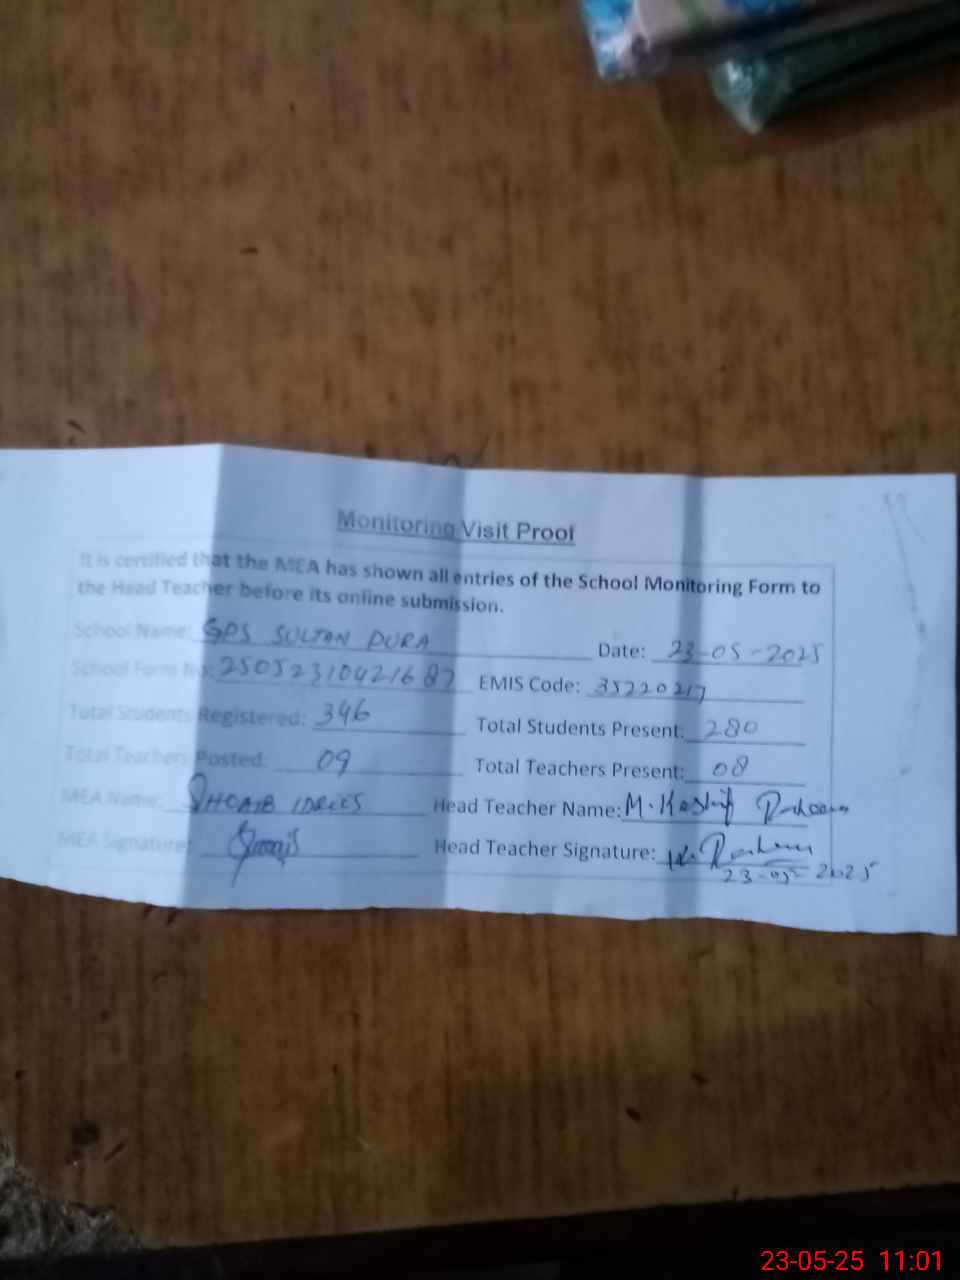 Monitoring Visit Proof
It is certified that the MEA has shown all entries of the School Monitoring Form to
the Head Teacher before its online submission.
School Name: GPS SULTAN PURA Date: 23-05-2025
School Form No: 25052310421687 EMIS Code: 35220217
Total Students Registered: 346 Total Students Present: 280
Total Teachers Posted: 09 Total Teachers Present: 08
MEA Name: SHOAIB IDREES Head Teacher Name: M. Kashif
MEA Signature: Head Teacher Signature:
23-05-2025
23-05-25 11:01